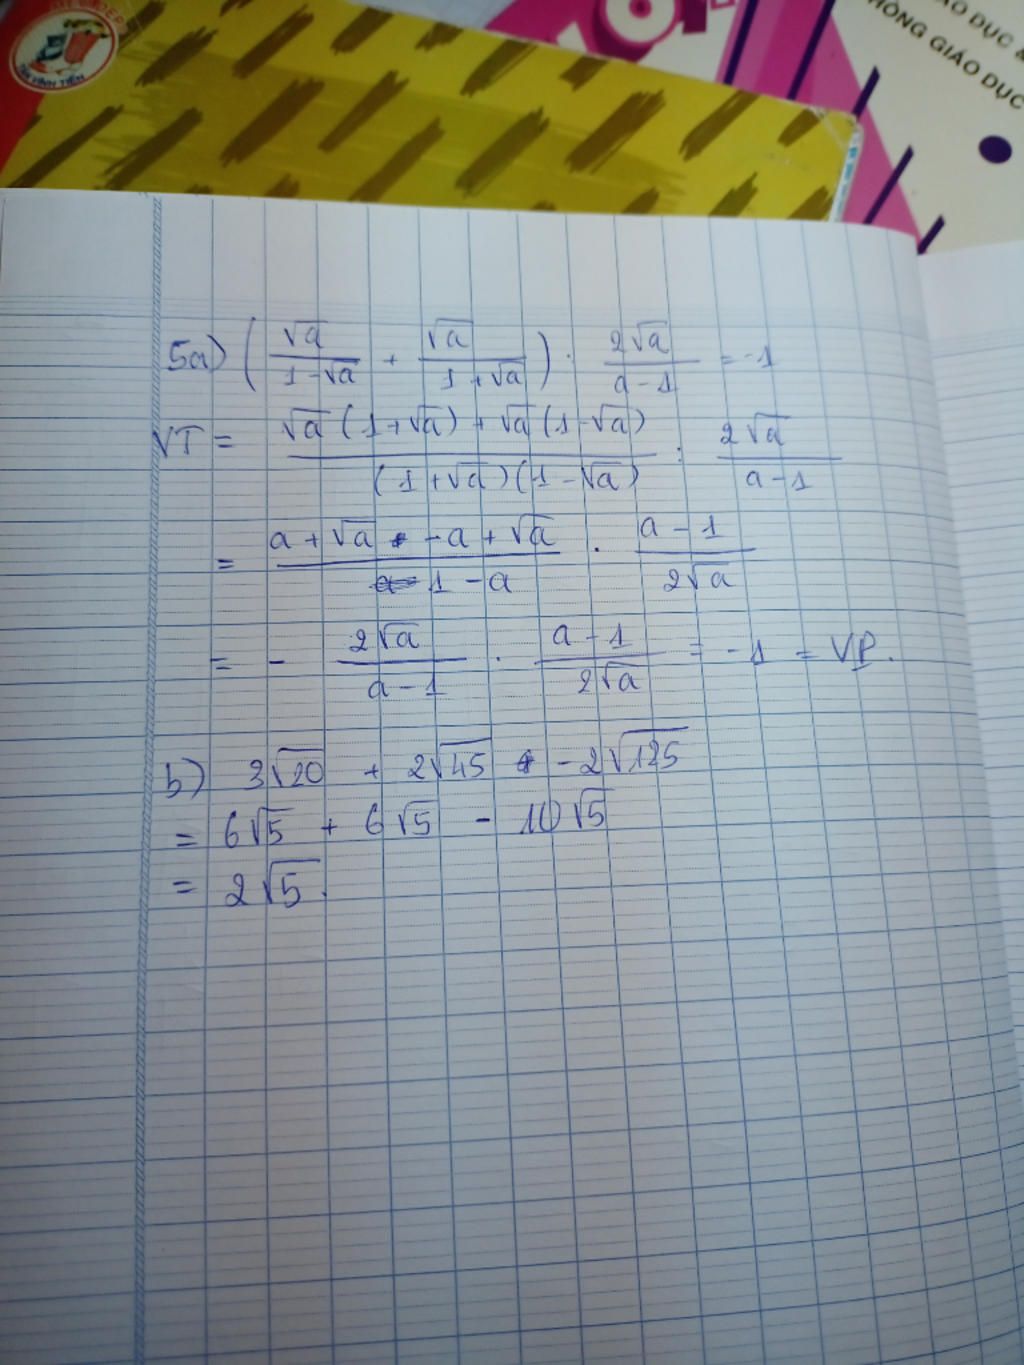 TÂN VĨNH TIẾN
ÁO DỤC &
PHÒNG GIÁO DỤC
5a) (√a/(1-√a) + √a/(1+√a)) : 2√a/(a-1) = -1
VT = (√a(1+√a) + √a(1-√a))/((1+√a)(1-√a)) : 2√a/(a-1)
= (a+√a -a+√a)/(1-a) . (a-1)/(2√a)
= - 2√a/(a-1) . (a-1)/(2√a) = -1 = VP.
b) 3√20 + 2√45 - 2√125
= 6√5 + 6√5 - 10√5
= 2√5.